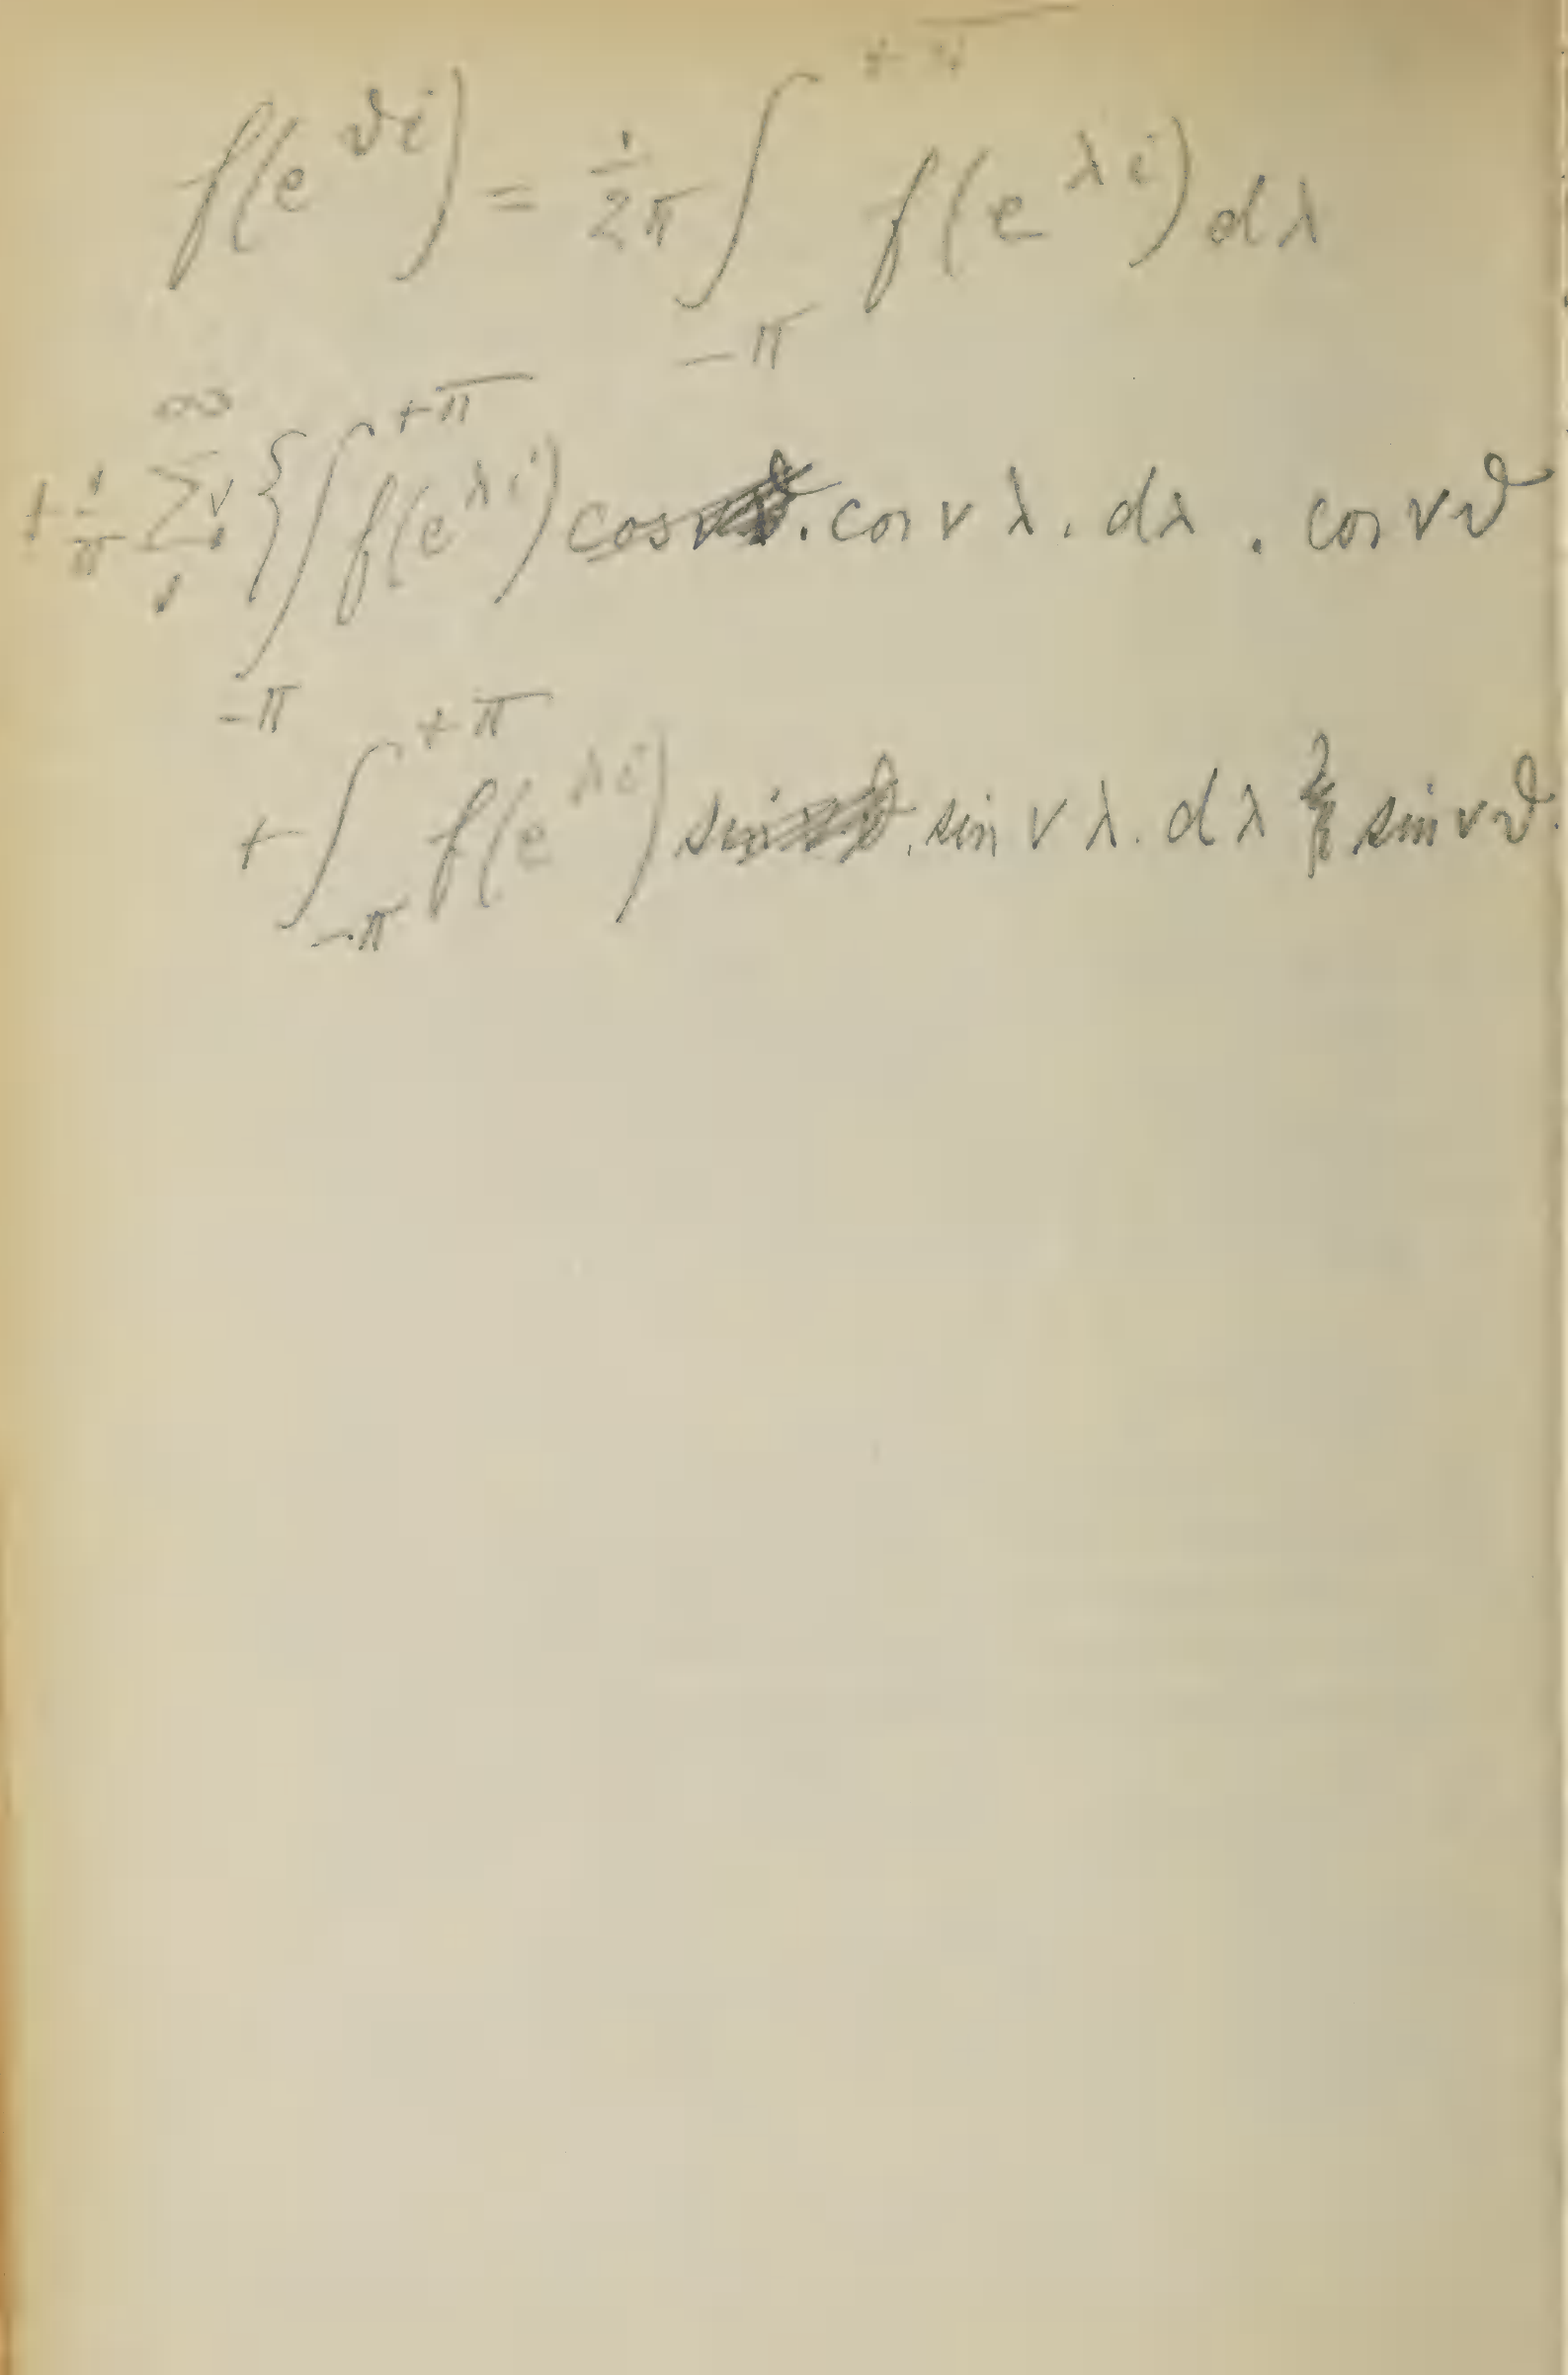 f(e^{ϑi}) = \frac{1}{2π} ∫_{-π}^{+π} f(e^{λi}) dλ
+ \frac{1}{π} ∑_{1}^{∞}ν { ∫_{-π}^{+π} f(e^{λi}) . cos ν λ . dλ . cos ν ϑ
+ ∫_{-π}^{+π} f(e^{λi}) . sin ν λ . dλ sin ν ϑ .